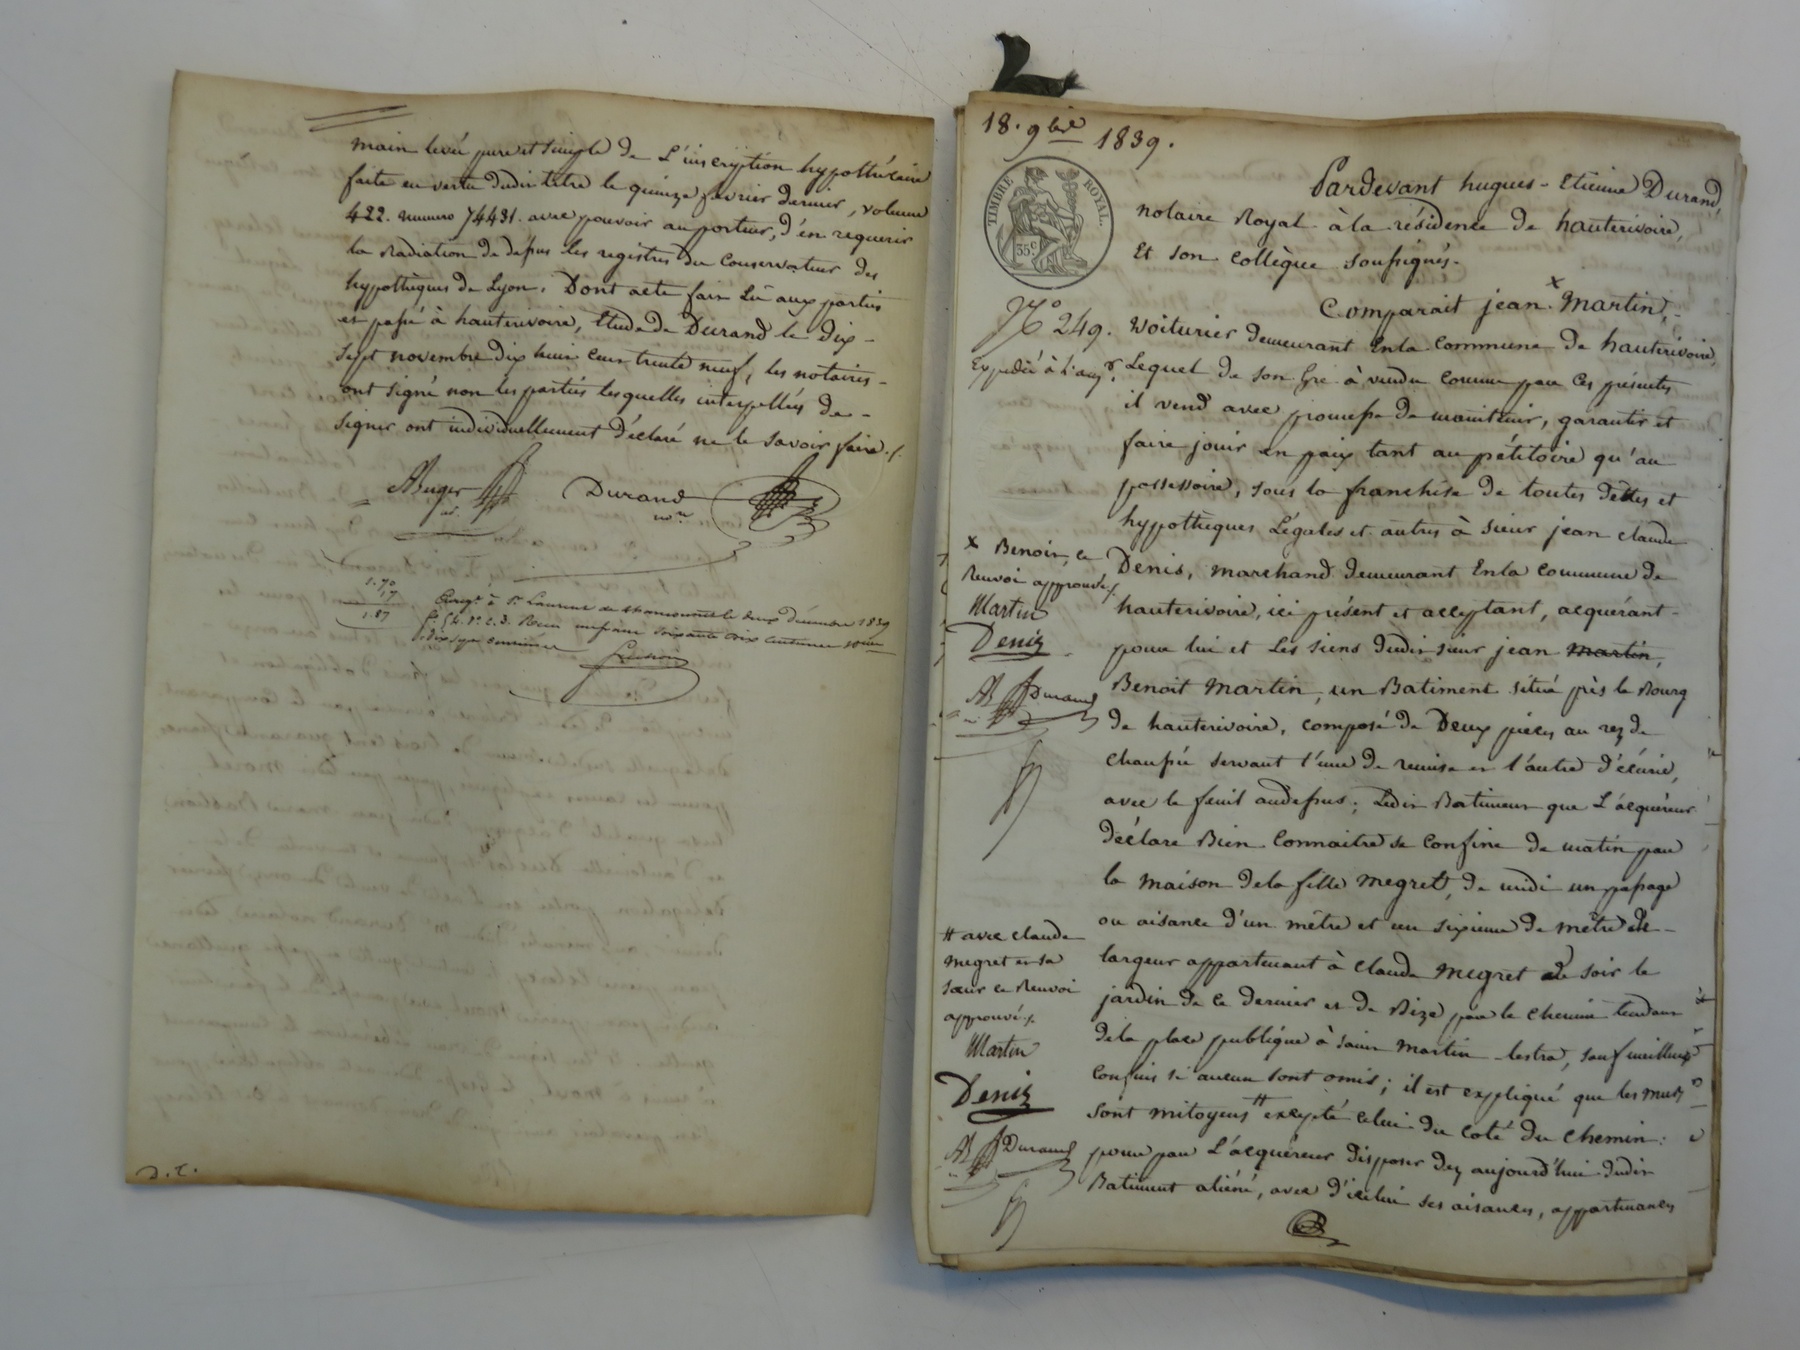 main levée pure et simple de L'inscription hypothécaire
faite en vertu dudit titre le quinze fevrier dernier, volume
422. numero 74431. avec pouvoir au porteur, d'en requerir
la Radiation de dessus les registres du Conservateur des
hypothèques de Lyon. Dont acte fait Lu aux parties
et passé à hauterivoire, Etude de Durand le dix-
sept novembre dix huit cent trente neuf, les notaires-
ont signé non les parties lesquelles interpellées de-
signer ont individuellement déclaré ne le savoir faire./.
Durand
nre
1.70
17
1.87
Enregé à St Laurent de chamousset le deux décembre 1839
Reçu un franc soixante dix centimes
dix sept centimes
D.C.
18. 9bre 1839.
TIMBRE ROYAL.
35c
Pardevant hugues-Etienne Durand,
notaire Royal à la résidence de hauterivoire,
Et son collègue soussignés.
Comparait jean x Martin,-
No 249. Voiturier demeurant En la commune de hauterivoire,
Expédié à l'acqr. Lequel de son Gré à vendu comme par ces présentes
il vend avec promesse de maintenir, garantir et
faire jouir en paix tant au pétitoire qu'au
possessoire, sous la franchise de toutes dettes et
hypothèques Légales et autres à sieur jean claude
x Benoit, ce
Renvoi approuvé/.
Martin
Deniz
Durand
Denis, marchand demeurant En la commune de
hauterivoire, ici présent et acceptant, acquérant-
pour lui et Les siens dudit sieur jean martin,
Benoit Martin, un Batiment situé près le Bourg
de hauterivoire, composé de Deux pièces au rez de
chaussée servant l'une de remise et l'autre d'écurie,
avec le fenil audessus; Ledit Batiment que L'acquéreur
déclare Bien Connaitre se confine de matin par
la maison de la fille Megret, de midi un passage
ou aisance d'un mètre et un sixieme de mètre de-
largeur appartenant à Claude Megret de soir le
jardin de ce dernier et de Bize par le chemin tendant
de la place publique à saint Martin-lestra, sauf meilleurs
confins si aucun sont omis; il est expliqué que les murs
sont mitoyens # excepté celui du coté du chemin:
pour par L'acquéreur disposer dez aujourd'hui dudit
Batiment aliéné, avec d'icelui ses aisances, appartenances
# avec claude
megret et sa
sœur ce Renvoi
approuvé./.
Martin
Deniz
Durand